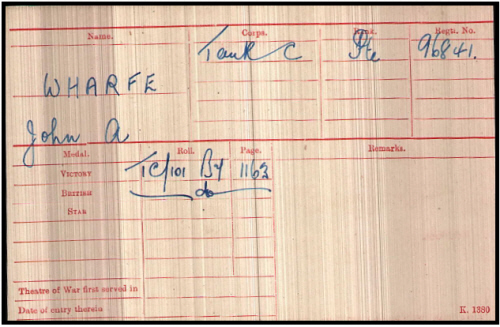 Name. Corps. Rank. Regtl. No.
Tank C Pte 96841.
WHARFE
John A
Medal. Roll. Page. Remarks.
VICTORY TC/101 B4 1162
BRITISH do
STAR
Theatre of War first served in
Date of entry therein K. 1380